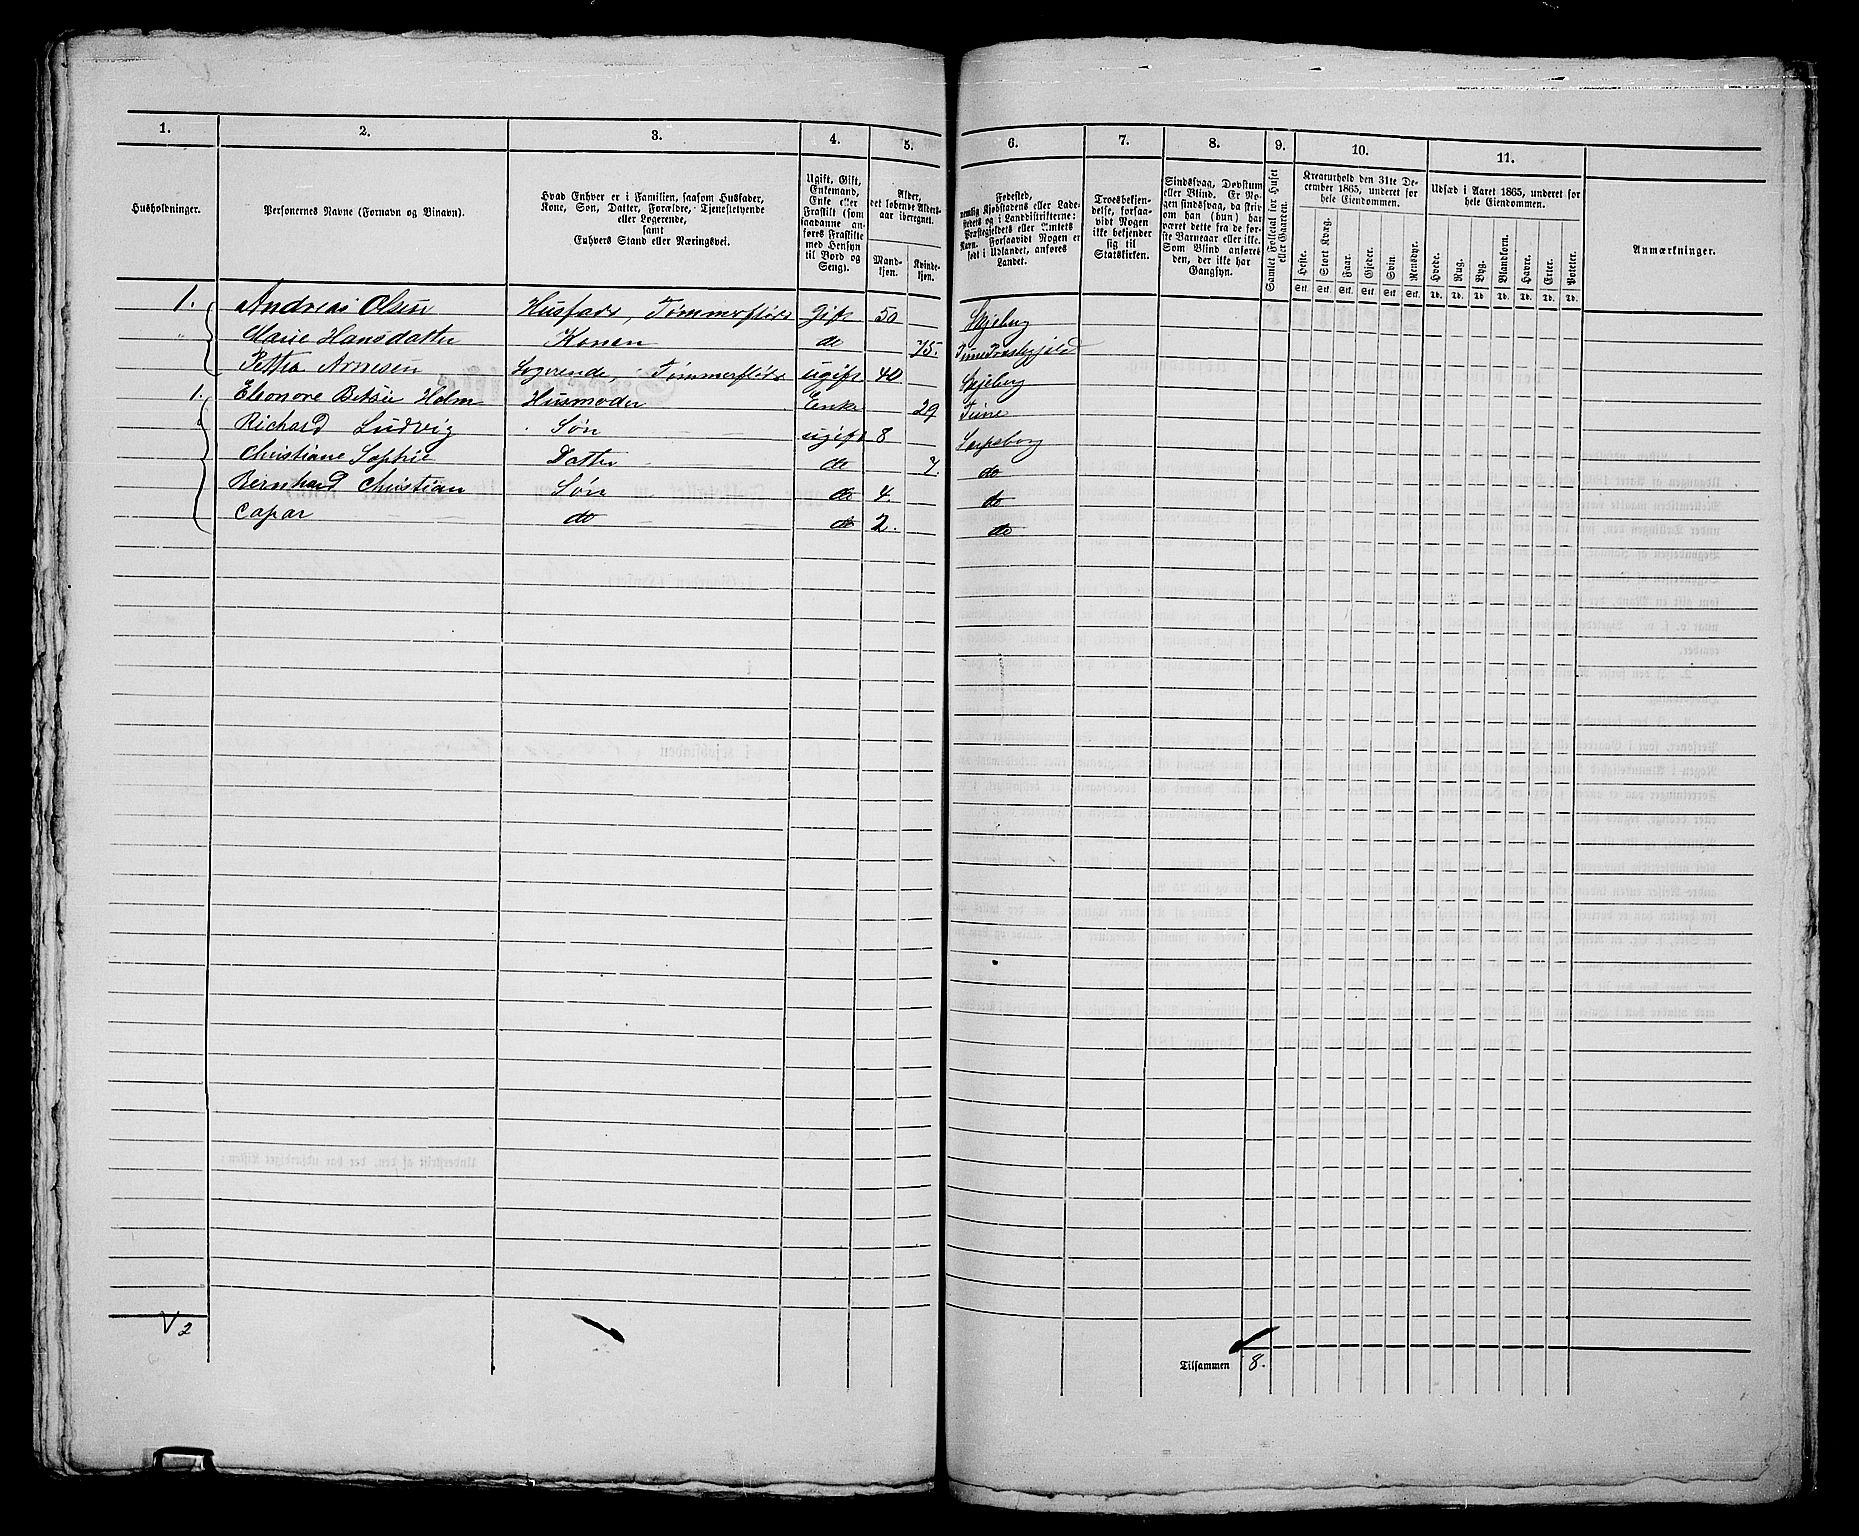 1. 2. 3. 4. 5. 6. 7. 8. 9. 10. 11.
Husholdninger.
Personernes Navne (Fornavn og Tilnavn).
Hvad Enhver er i Familien, saasom Husfader,
Kone, Søn, Datter, Forældre, Tjenestetyende
eller Logerende,
samt
Enhvers Stand eller Næringsvei.
Ugift, Gift,
Enkemand,
Enke eller
Fraskilt (som
saadanne an-
føres Fraskilte
med Hensyn
til Bord og
Seng).
Alder,
det løbende Alders-
aar iberegnet.
Mand-
kjøn.
Kvinde-
kjøn.
Fødested,
nemlig Kjøbstadens eller Lade-
stedets og i Landdistrikterne:
Præstegjeldets eller Amtets
Navn. Forsaavidt Nogen er
født i Udlandet, anføres
Landet.
Troesbekjen-
delse, forsaa-
vidt Nogen
ikke bekjender
sig til
Statskirken.
Sindssvag, Døvstum
eller Blind. Er No-
gen sindssvag, da skriv
om han (hun) har
været dette fra de før-
ste Barneaar eller ikke.
Som Blind anføres
den, der ikke har
Gangsyn.
Samlet Folketal for Huset
eller Gaarden.
Kreaturhold den 31te De-
cember 1865, underet for
hele Eiendommen.
Heste. Stort Kvæg. Faar. Gjeder. Svin. Rensdyr.
Stk. Stk. Stk. Stk. Stk. Stk.
Udsæd i Aaret 1865, underet for
hele Eiendommen.
Hvede. Rug. Byg. Blandkorn. Havre. Erter. Poteter.
Td. Td. Td. Td. Td. Td. Td.
Anmærkninger.
1. Andreas Olsen Husfader, Tømmerfløder Gift 50 Skjeberg
" Marie Hansdatter Konen do 75. Tune Præstegjeld
Petter Arnesen Logerende, Tømmerfløder ugift 40 Skjeberg
1. Eleonore Betsie Holm Husmoder Enke 29 Tune
Richard Ludvig Søn ugift 8 Sarpsborg
Christiane Sophie Datter do 7. do
Bernhard Christian Søn do 4. do
Caspar do do 2. do
V 2
Tilsammen 8.